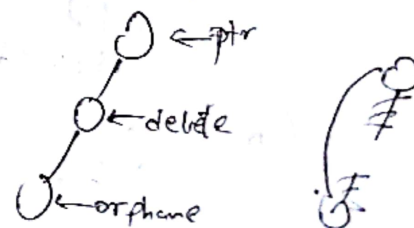 ptr
delete
orphane